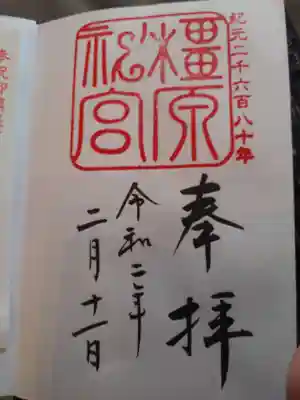 紀元二千六百八十年
橿原
神宮
奉拝
令和二年
二月十一日